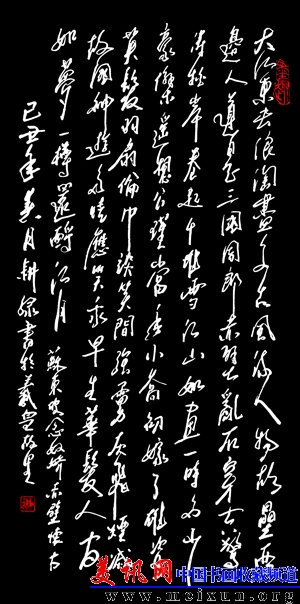 大江東去浪淘盡千古風流人物故壘西
邊人道是三國周郎赤壁亂石穿空驚
濤拍岸卷起千堆雪江山如畫一時多少
豪傑遙想公瑾當年小喬初嫁了雄姿
英發羽扇綸巾談笑間強虜灰飛煙滅
故國神遊多情應笑我早生華髮人间
如夢一樽還酹江月 蘇東坡念奴嬌赤壁懷古
己丑年 月耕 書於
美讯网 中国书画收藏频道
www.meixun.org